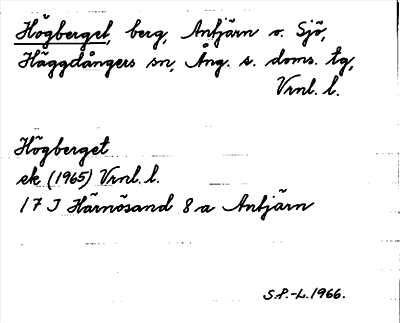 Högberget, berg, Antjärn o. Sjö,
Häggdångers sn, Ång. s. doms. tg,
Vrnl. l.
Högberget
ek (1965) Vrnl. l.
17 J Härnösand 8 a Antjärn
S.P.-L. 1966.